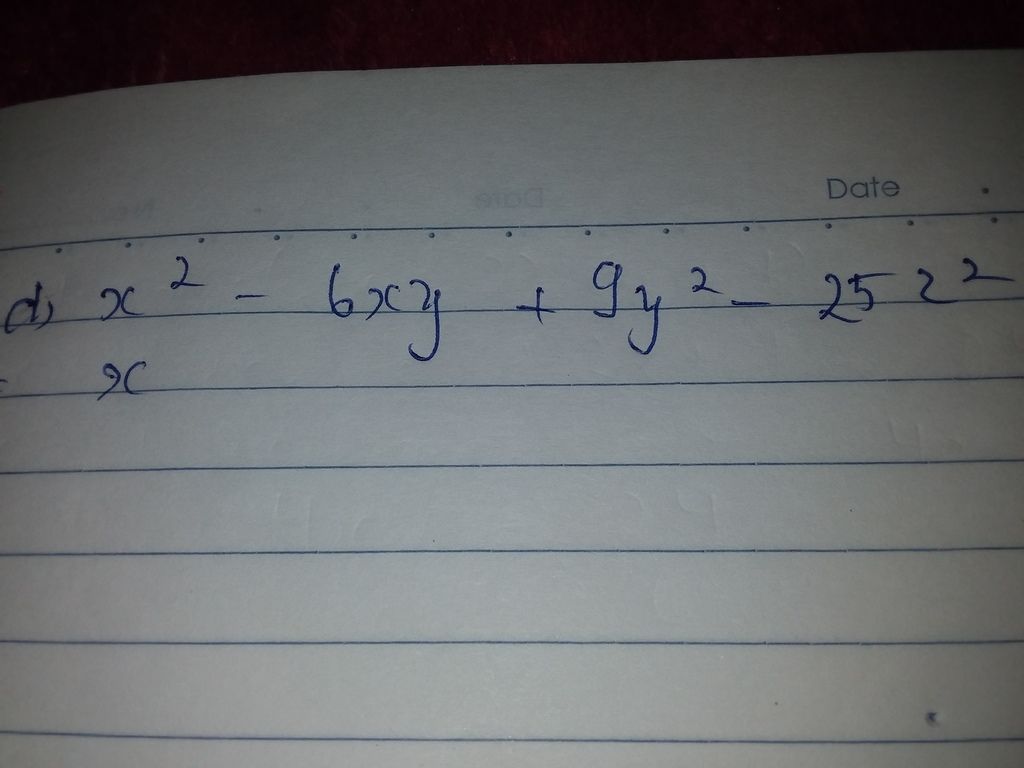 Date
d) x² - 6xy + 9y² - 25z²
= x